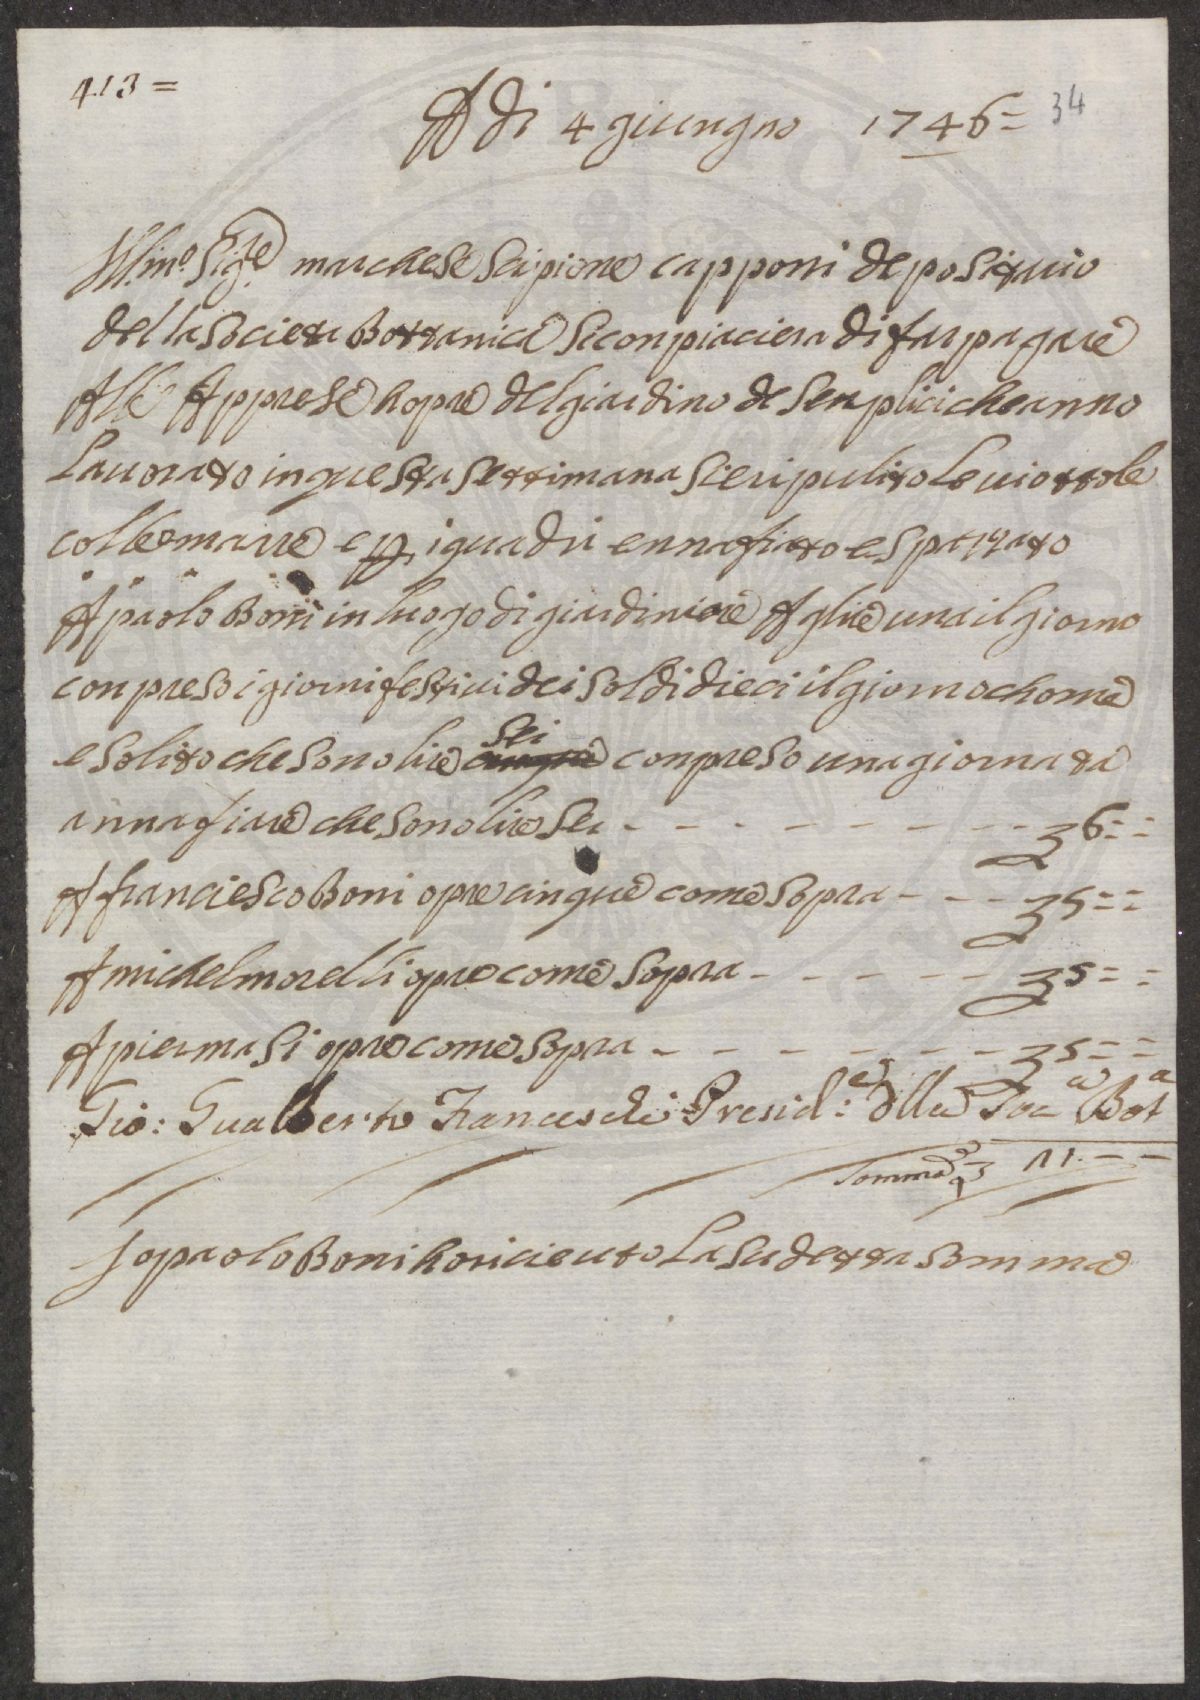 413 =
34
A di 4 giungno 1746 =
Ill.mo Sig.re marchese Scipione capponi depositario
della Societa Bottanica Si conpiaciera di far pagare
Alle Apprese hopre del giardino de Senplici che anno
Lauorato in questa Settimana Sie ripulito Le uiottole
colle marre e p i quadri ennafiato e Spazzato
A paolo Boni in luogo di giardiniere A lire una il giorno
conpreso i giorni festiui dei Soldi dieci il giorno chome
e Solito che Sono lire Sei conpreso una giornata
annafiare che Sono lire Sei - - - - - - - - 6 = =
A franciesco Boni opre cinque come Sopra - - - 5 = =
A michel morelli opre come Sopra - - - - - - 5 = =
A pier masi opre come Sopra - - - - - - - - 5 = =
Gio: Gualberto Franceschi Presid:e della Soc.a Bot.a
Somma
Io paolo Boni ho ricieuto La Sudetta Somma